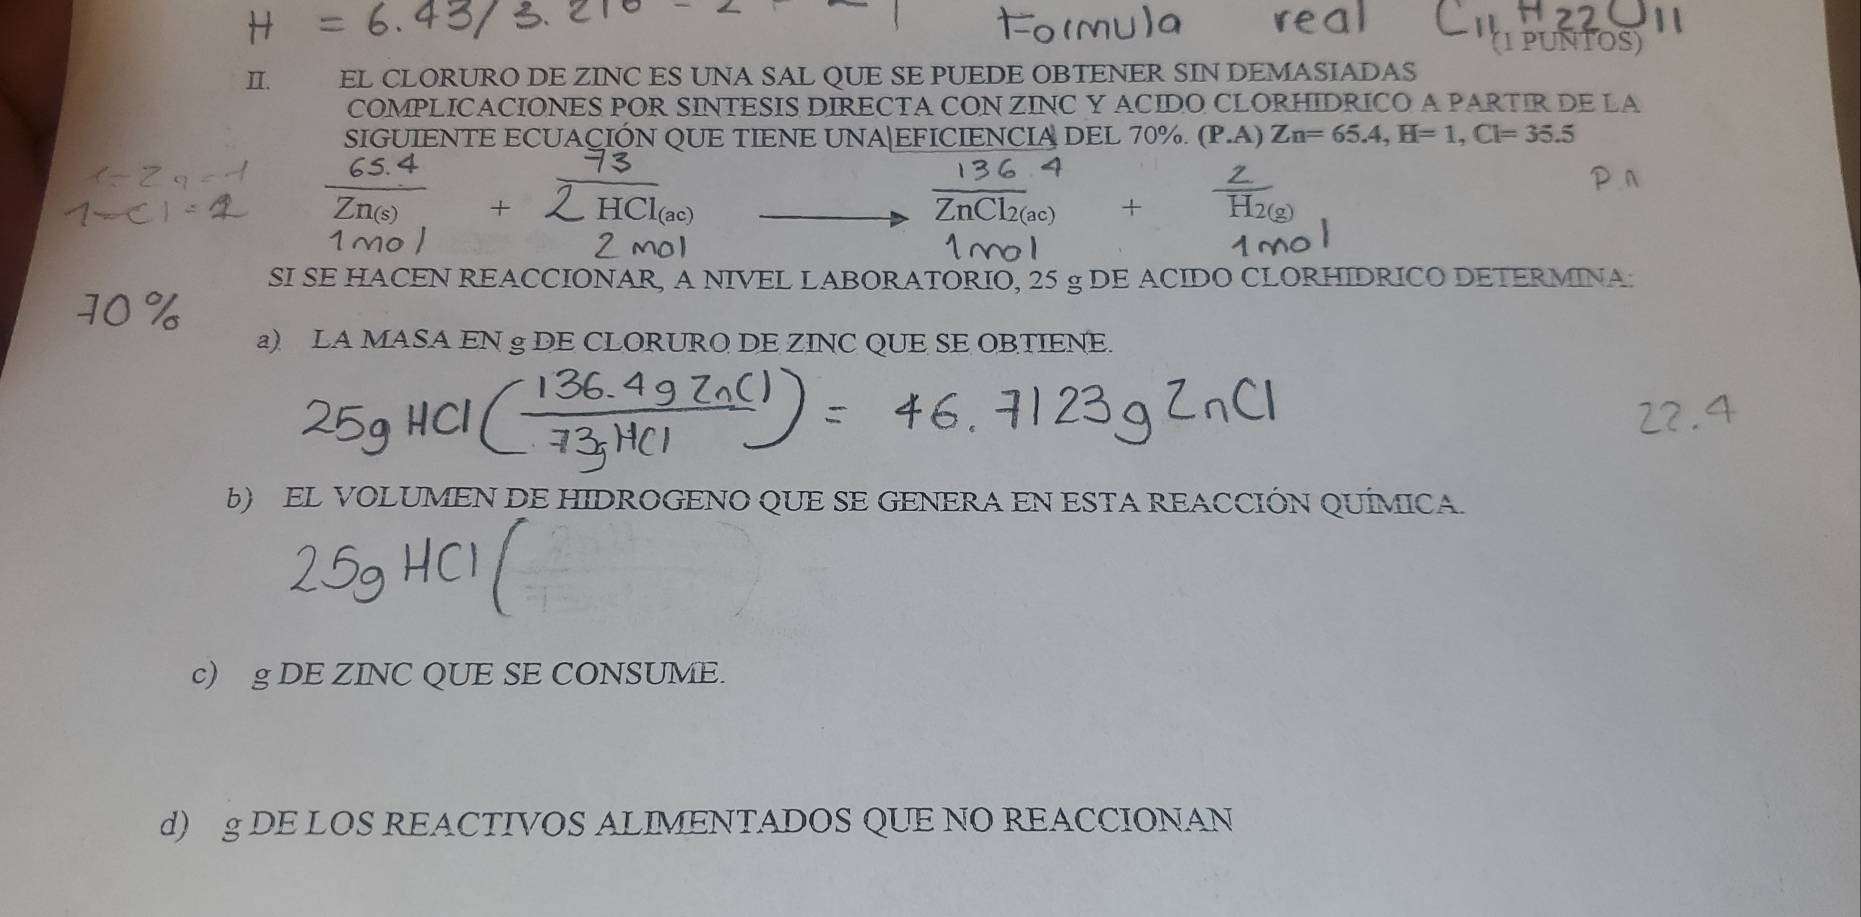 H = 6.43/3.216 - 2 Formula real C11 H22O11
(1 PUNTOS)
II. EL CLORURO DE ZINC ES UNA SAL QUE SE PUEDE OBTENER SIN DEMASIADAS
COMPLICACIONES POR SINTESIS DIRECTA CON ZINC Y ACIDO CLORHIDRICO A PARTIR DE LA
SIGUIENTE ECUACIÓN QUE TIENE UNA EFICIENCIA DEL 70%. (P.A) Zn= 65.4, H= 1, Cl= 35.5
65.4 73 136.4 2
1-Zn=1
1-Cl=2
Zn(s) + 2 HCl(ac) → ZnCl2(ac) + H2(g)
1mol 2 mol 1mol 1mol
SI SE HACEN REACCIONAR, A NIVEL LABORATORIO, 25 g DE ACIDO CLORHIDRICO DETERMINA:
70%
a) LA MASA EN g DE CLORURO DE ZINC QUE SE OBTIENE.
25g HCl (136.4g ZnCl / 73g HCl) = 46.7123g ZnCl
22.4
b) EL VOLUMEN DE HIDROGENO QUE SE GENERA EN ESTA REACCIÓN QUÍMICA.
25g HCl (
c) g DE ZINC QUE SE CONSUME.
d) g DE LOS REACTIVOS ALIMENTADOS QUE NO REACCIONAN